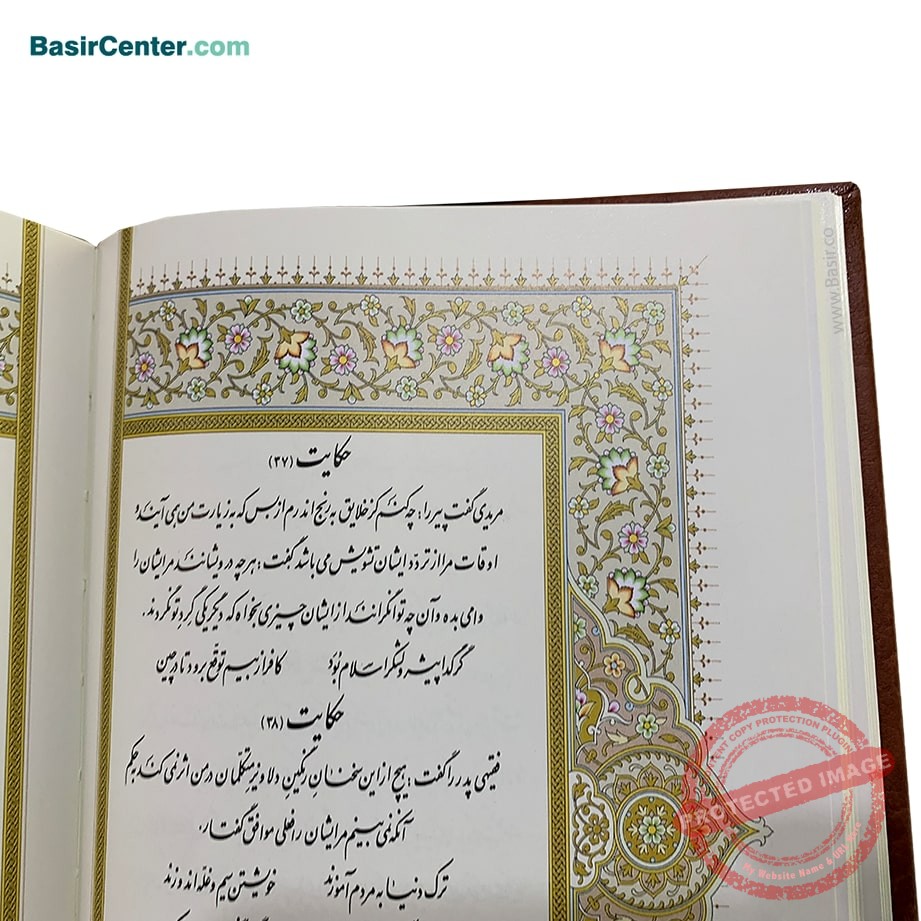 BasirCenter.com
www.Basir.co
حکایت (۳۷)
مریدی گفت پیر را: چه کنم کز خلایق به رنج اندرم از بس که به زیارت من همی آیند و
اوقات مرا از تردد ایشان تشویش می باشد گفت: هر چه درویشانند مر ایشان را
وامی بده و آن چه توانگرانند از ایشان چیزی بخواه که دیگر یکی گرد تو نگردند.
گر گدا پیشرو لشکر اسلام بُوَد کافر از بیم توقّع برود تا در چین
حکایت (۳۸)
فقیهی پدر را گفت: هیچ از این سخنانِ رنگینِ دلاویزِ متکلّمان در من اثر نمی کند به حکم
آنکه نمی بینم مر ایشان را فعلی موافق گفتار.
ترک دنیا به مردم آموزند خویشتن سیم و غلّه اندوزند
PROTECTED IMAGE
My Website Name & URL
CONTENT COPY PROTECTION PLUGIN